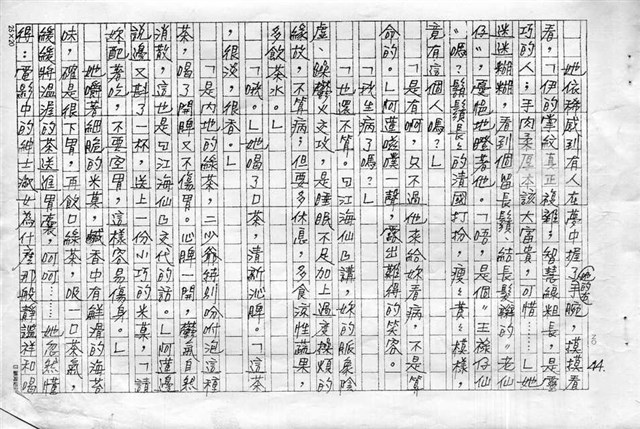 44.
她依稀感到有人在夢中握了她的右手腕，摸摸看
看，「伊的掌紋真正複雜，智慧線粗長，是靈
巧的人；手肉柔厚本該大富貴，可惜……」她
迷迷糊糊，看到個留長鬚、結長髮辮的「老仙
仔」，憂愁地瞪著他。「唔，是個『王祿仔仙
』嗎？鬍鬚長長的清國打扮，瘦瘦黃黃模樣，
竟有這個人嗎？」
「是有啊，只不過他來給妳看病，不是算
命的。」阿蓮噗嘆一聲，露出難得的笑容。
「我生病了嗎？」
「也還不算。曰江海仙仔講，妳的脈象陰
虛，躁鬱火交攻，是睡眠不足加上過度操煩的
緣故，不算病；但要多休息，多食涼性蔬果，
多飲茶水。」
「哦。」她喝了口茶，清新沁脾。「這茶
，很淡，很香。」
「是內地的綠茶，二少爺特別吩咐泡這種
茶，喝了開脾又不傷胃。心脾一開，鬱氣自然
消散，這也是曰江海仙仔交代的話。」阿蓮邊
說邊又斟了一杯，送上一份小巧的米菓，「請
妳配著吃，不要空胃，這樣容易傷身。」
她嚼著細脆的米菓，鹹香中有鮮滑的海苔
味，確是很下胃，再飲口綠茶，吸一口茶氣，
緩緩將溫溼的茶送進胃囊，呵呵……她忽然懂
得：電影中的紳士淑女為什麼那般靜謐祥和喝
25×20